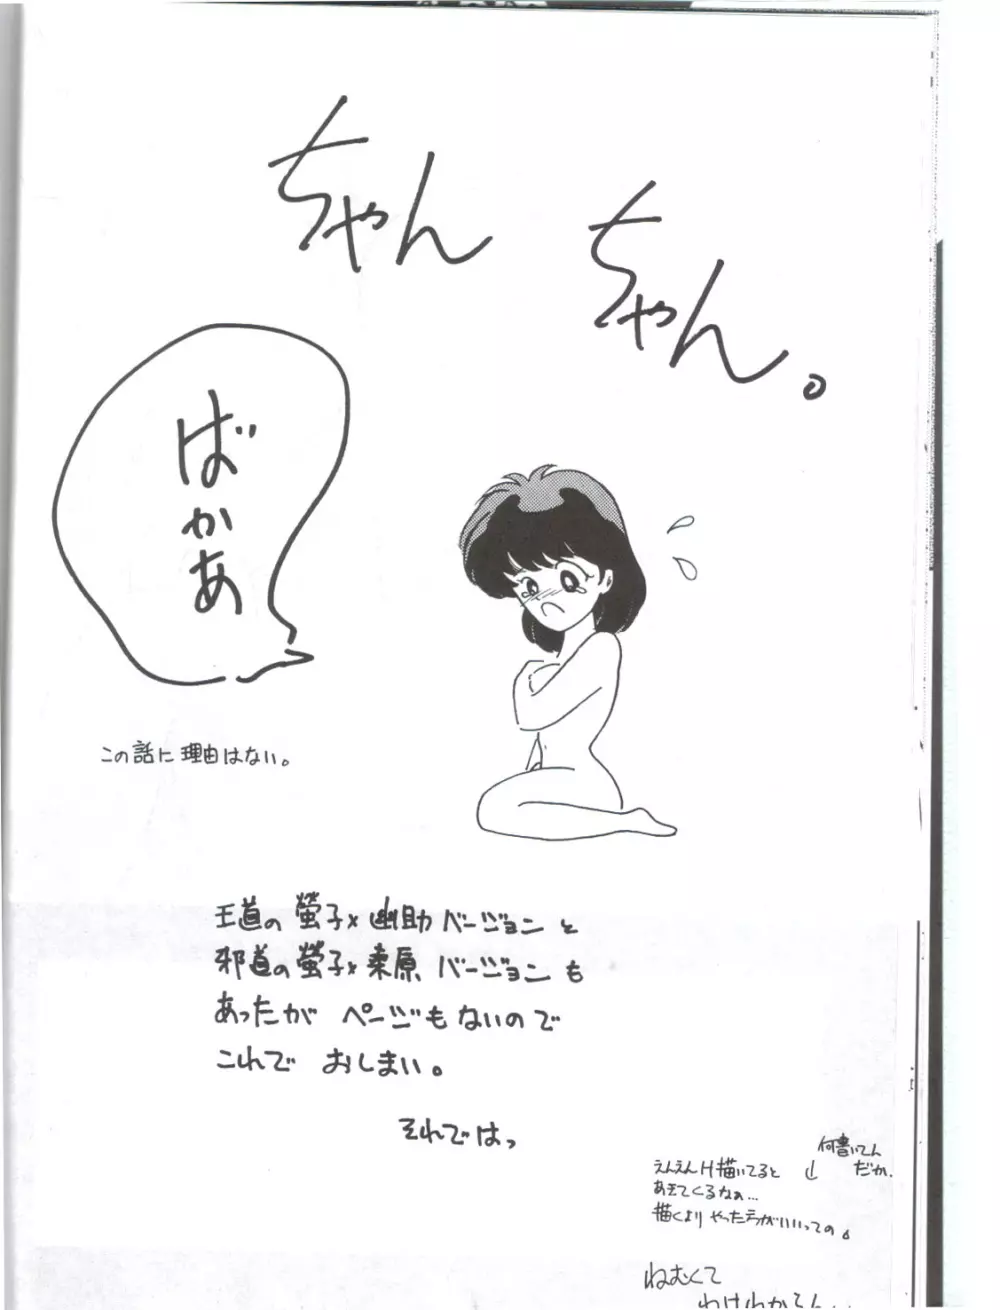 ちゃん
ちゃん。
ばかあ
この話に理由はない。
王道の螢子×幽助バージョンと
邪道の螢子×桑原バージョンも
あったが ページもないので
これで おしまい。
それではっ
何書いてん
だか。
えんえんH描いてると
あきてくるなぁ…
描くより やった方がいいっての。
ねむくて
わけわかてん..